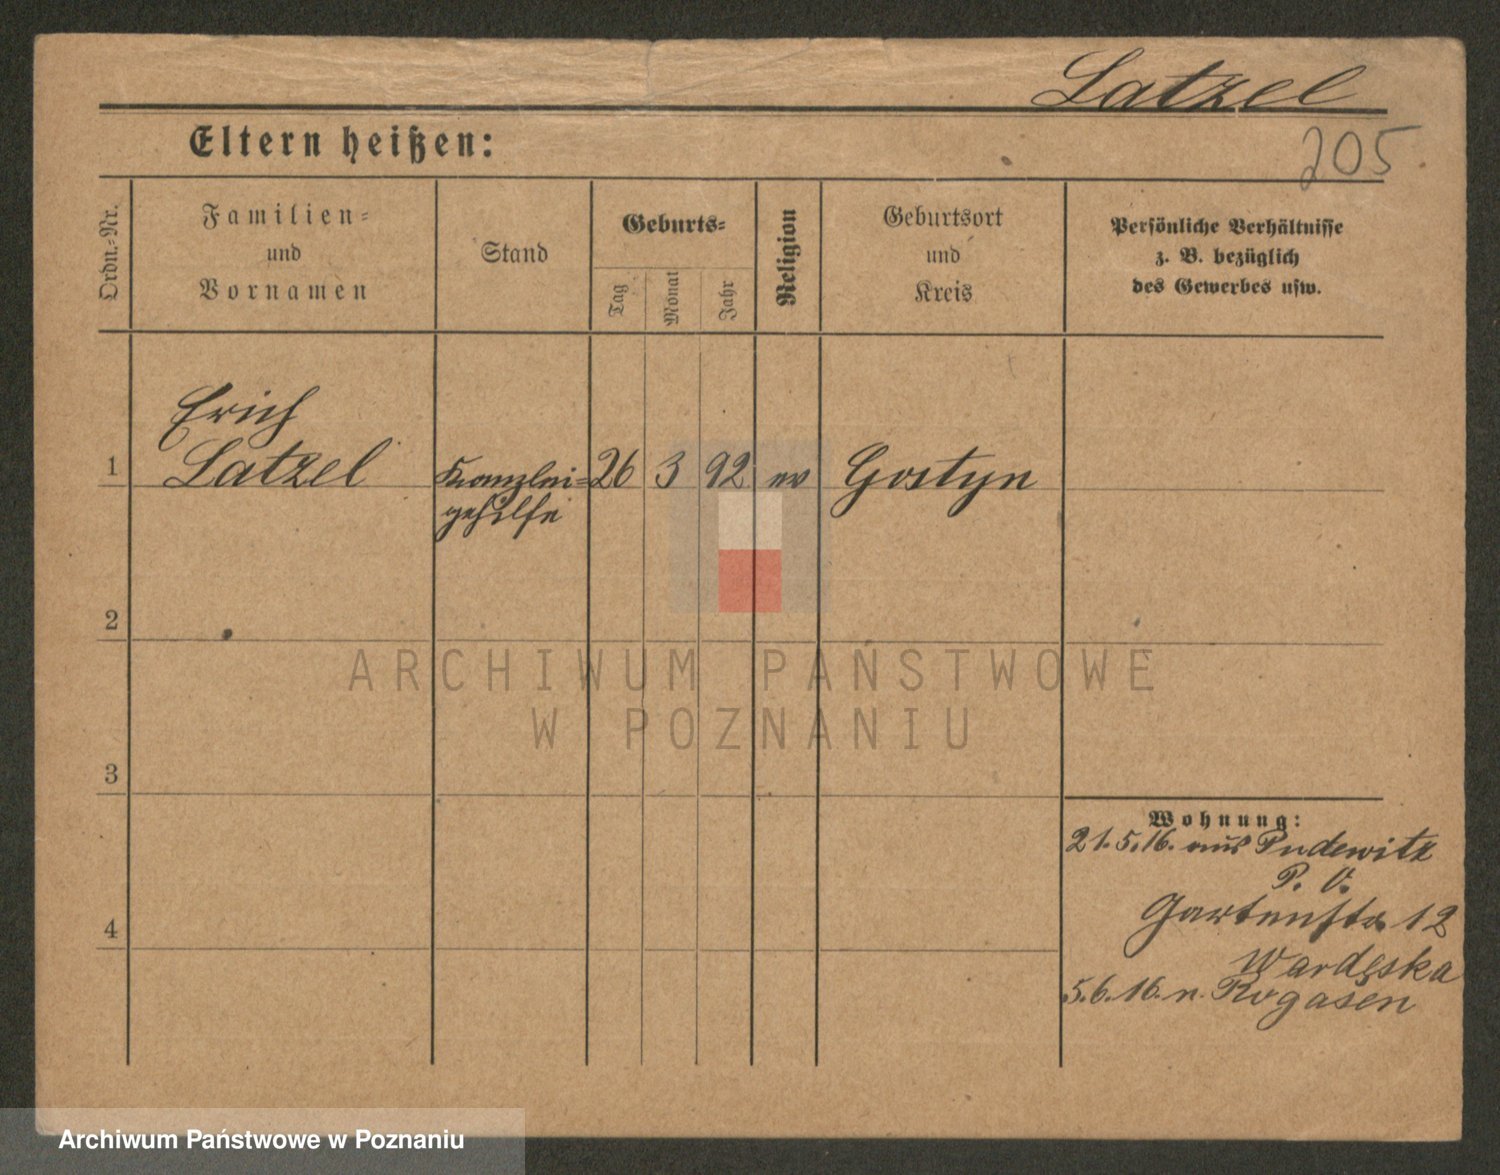 Latzel
205
Eltern heißen:
Ordn.-Nr.
Familien-
und
Vornamen
Stand
Geburts-
Tag
Monat
Jahr
Religion
Geburtsort
und
Kreis
Persönliche Verhältnisse
z. B. bezüglich
des Gewerbes usw.
Erich
1 Latzel Kanzlei- 26 3 92 ev Gostyn
gehilfe
2
ARCHIWUM PAŃSTWOWE
W POZNANIU
3
Wohnung:
21.5.16. aus Pudewitz
P. O.
4 Gartenstr 12
Wardęska
5.6.16. n. Rogasen
Archiwum Państwowe w Poznaniu